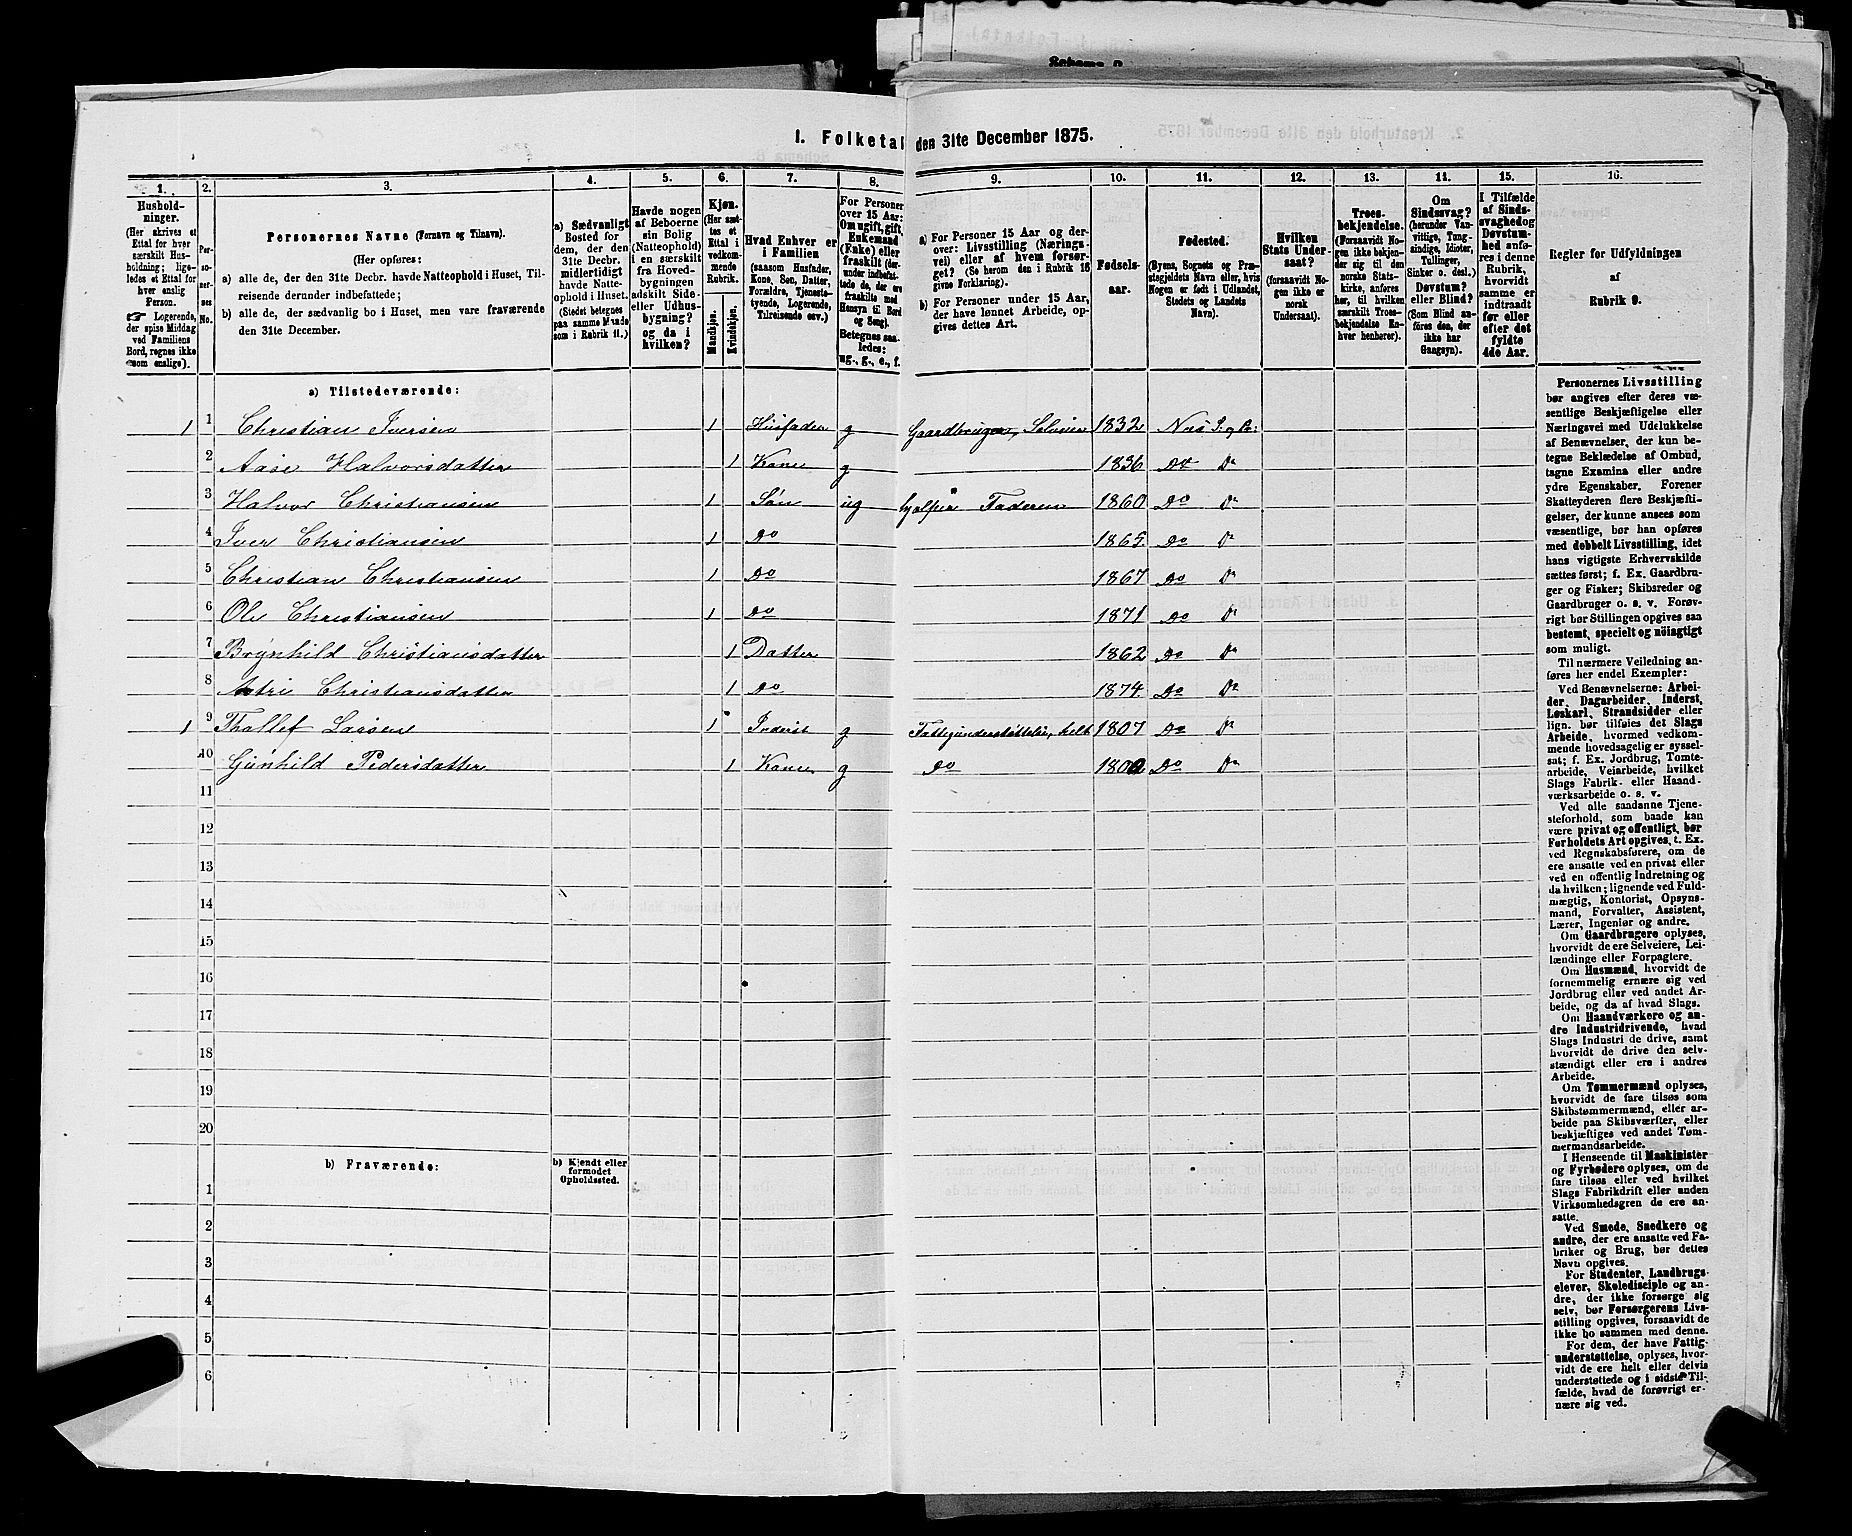 1. Folketal den 31te December 1875.
1. 2. 3. 4. 5. 6. 7. 8. 9. 10. 11. 12. 13. 14. 15. 16.
Hushold-
ninger.
(Her skrives et
Ettal for hver
særskilt Hus-
holdning; lige-
ledes et Ettal for
hver enslig
Person.
☞ Logerende,
der spise Middag
ved Familiens
Bord, regnes ikke
som enslige).
Per-
so-
ner-
nes
No.
Personernes Navne (Fornavn og Tilnavn).
(Her opføres:
a) alle de, der den 31te Decbr. havde Natteophold i Huset, Til-
reisende derunder indbefattede;
b) alle de, der sædvanlig bo i Huset, men vare fraværende
den 31te December.
a) Sædvanligt
Bosted for
dem, der den
31te Decbr.
midlertidigt
havde Natte-
ophold i Huset.
(Stedet betegnes
paa samme Maade
som i Rubrik 11.)
Havde nogen
af Beboerne
sin Bolig
(Natteophold)
i en særskilt
fra Hoved-
bygningen
adskilt Side-
eller Udhus-
bygning?
og da i
hvilken?
Kjøn.
(Her sæt-
tes et
Ettal i
vedkom-
mende
Rubrik.
Mandkjøn.
Kvindekjøn.
Hvad Enhver er
i Familien
(saasom Husfader,
Kone, Søn, Datter,
Forældre, Tjeneste-
tyende, Logerende,
Tilreisende osv.)
For Personer
over 15 Aar:
Om ugift, gift,
Enkemand
(Enke) eller
fraskilt (her-
under indbefat-
tede de, der ere
fraskilte med
Hensyn til Bord
og Seng).
Betegnes saa-
ledes:
ug., g., e., f.
a) For Personer 15 Aar og der-
over: Livsstilling (Nærings-
vei) eller af hvem forsør-
get? (Se herom den i Rubrik 16
givne Forklaring).
b) For Personer under 15 Aar,
der have lønnet Arbeide, op-
gives dettes Art.
Fødsels-
aar.
Fødested.
(Byens, Sognets og Præ-
stegjeldets Navn eller, hvis
Nogen er født i Udlandet,
Stedets og Landets
Navn).
Hvilken
Stats Under-
saat?
(forsaavidt No-
gen ikke er
norsk
Undersaat).
Troes-
bekjendelse.
(Forsaavidt No-
gen ikke bekjen-
der sig til den
norske Stats-
kirke, anføres
her, til hvilken
særskilt Troes-
bekjendelse En-
hver henhører).
Om
Sindssvag?
(herunder Van-
vittige, Tung-
sindige, Idioter,
Tullinger,
Sinker o. desl.)
Døvstum?
eller Blind?
(Som Blind an-
føres den, der
ikke har
Gangsyn).
I Tilfælde
af Sinds-
svaghed og
Døvstum-
hed anfø-
res i denne
Rubrik,
hvorvidt
samme er
indtraadt
før eller
efter det
fyldte
4de Aar.
Regler for Udfyldningen
af
Rubrik 9.
a) Tilstedeværende:
1 1 Christian Iversen 1 Husfader g Gaardbruger, Selveier 1832 Næs S. og Pr:
2 Aase Halvorsdatter 1 Kone g 1836 Do Do
3 Halvor Christiansen 1 Søn ug hjelper Faderen 1860 Do Do
4 Iver Christiansen 1 Do 1865 Do Do
5 Christian Christiansen 1 Do 1867 Do Do
6 Ole Christiansen 1 Do 1871 Do Do
7 Brynhild Christiansdatter 1 Datter 1862 Do Do
8 Astri Christiansdatter 1 Do 1874 Do Do
1 9 Thollef Larsen 1 Inderst g Fattigunderstøttelse, helt 1807 Do Do
10 Gunhild Pedersdatter 1 Kone g Do 1800 Do Do
11
12
13
14
15
16
17
18
19
20
b) Fraværende:
b) Kjendt eller
formodet
Opholdssted.
1
2
3
4
5
6
Personernes Livsstilling
bør angives efter deres væ-
sentlige Beskjæftigelse eller
Næringsvei med Udelukkelse
af Benævnelser, der kun be-
tegne Beklædelse af Ombud,
tagne Examina eller andre
ydre Egenskaber. Forener
Skatteyderen flere Beskjæfti-
gelser, der kunne ansees som
væsentlige, bør han opføres
med dobbelt Livsstilling, idet
hans vigtigste Erhvervskilde
sættes først; f. Ex. Gaardbru-
ger og Fisker; Skibsreder og
Gaardbruger o. s. v. Forøv-
rigt bør Stillingen opgives saa
bestemt, specielt og nöiagtigt
som muligt.
Til nærmere Veiledning an-
føres her endel Exempler:
Ved Benævnelserne: Arbei-
der, Dagarbeider, Inderst,
Løskarl, Strandsidder eller
lign. bør tilføies det Slags
Arbeide, hvormed vedkom-
mende hovedsagelig er syssel-
sat; f. Ex. Jordbrug, Tomte-
arbeide, Veiarbeide, hvilket
Slags Fabrik- eller Haand-
værksarbeide o. s. v.
Ved alle saadanne Tjene-
steforhold, som baade kan
være privat og offentligt, bør
Forholdets Art opgives, t. Ex.
ved Regnskabsførere, om de
ere ansatte ved en privat eller
ved en offentlig Indretning og
da hvilken; lignende ved Fuld-
mægtig, Kontorist, Opsyns-
mand, Forvalter, Assistent,
Lærer, Ingeniør og andre.
Om Gaardbrugere oplyses,
hvorvidt de ere Selveiere, Lei-
lændinge eller Forpagtere.
Om Husmænd, hvorvidt de
fornemmelig ernære sig ved
Jordbrug eller ved andet Ar-
beide, og da af hvad Slags.
Om Haandværkere og an-
dre Industridrivende, hvad
Slags Industri de drive, samt
hvorvidt de drive den selv-
stændigt eller ere i andres
Arbeide.
Om Tømmermænd oplyses,
hvorvidt de fare tilsøs som
Skibstømmermænd, eller ar-
beide paa Skibsværfter, eller
beskjæftiges ved andet Tøm-
mermandsarbeide.
I Henseende til Maskinister
og Fyrbødere oplyses, om de
fare tilsøs eller ved hvilket
Slags Fabrikdrift eller anden
Virksomhedsgren de ere an-
satte.
Ved Smede, Snedkere og
andre, der ere ansatte ved Fa-
briker og Brug, bør dettes
Navn opgives.
For Studenter, Landbrugs-
elever, Skoledisciple og an-
dre, der ikke forsørge sig
selv, bør Forsørgerens Livs-
stilling opgives, forsaavidt de
ikke bo sammen med denne.
For dem, der have Fattig-
understøttelse, oplyses, hvor-
vidt de ere helt eller delvis
understøttede og i sidste Til-
fælde, hvad de forøvrigt er-
nære sig ved.